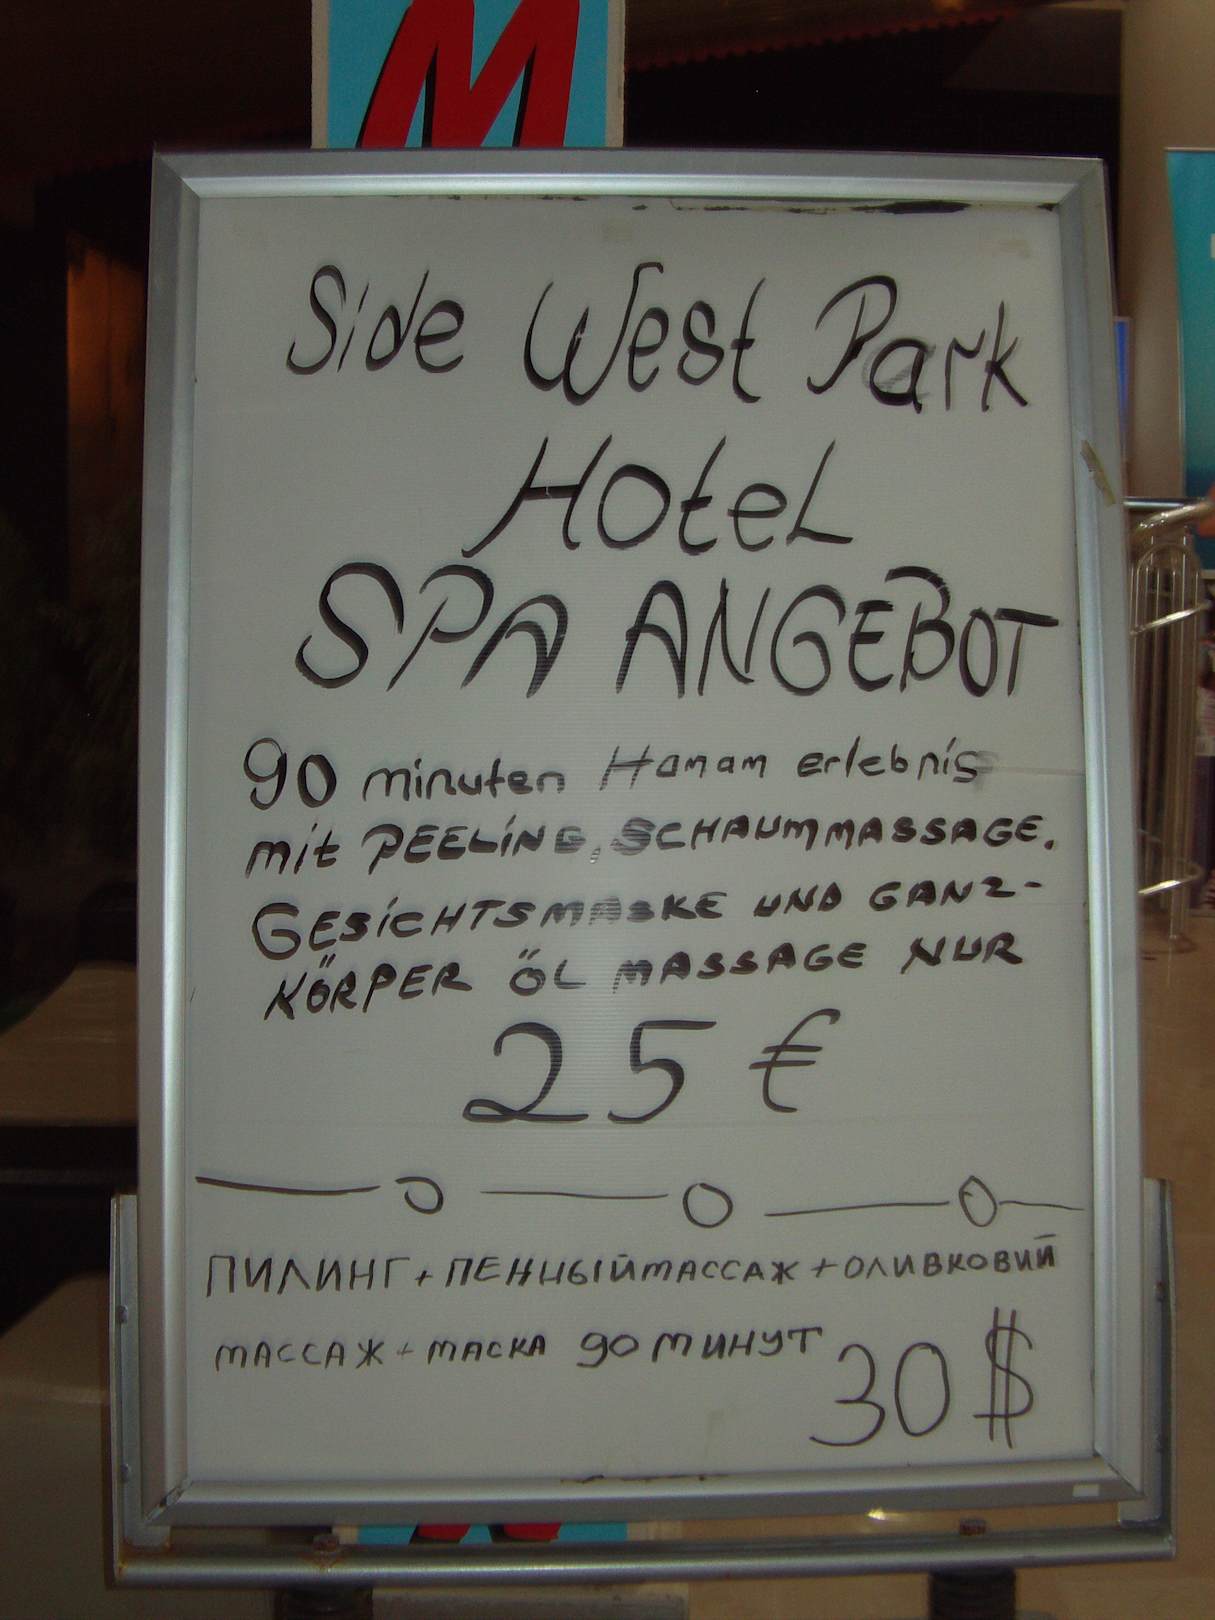 M
Side West Park
HOteL
SPA ANGEBOT
90 minuten Hamam erlebnis
mit PEELING, SCHAUMMASSAGE.
GESICHTSMASKE UND GANZ-
KÖRPER ÖL MASSAGE NUR
25 €
ПИЛИНГ + ПЕННЫЙ МАССАЖ + ОЛИВКОВИЙ
МАССАЖ + МАСКА 90 МИНУТ
30 $